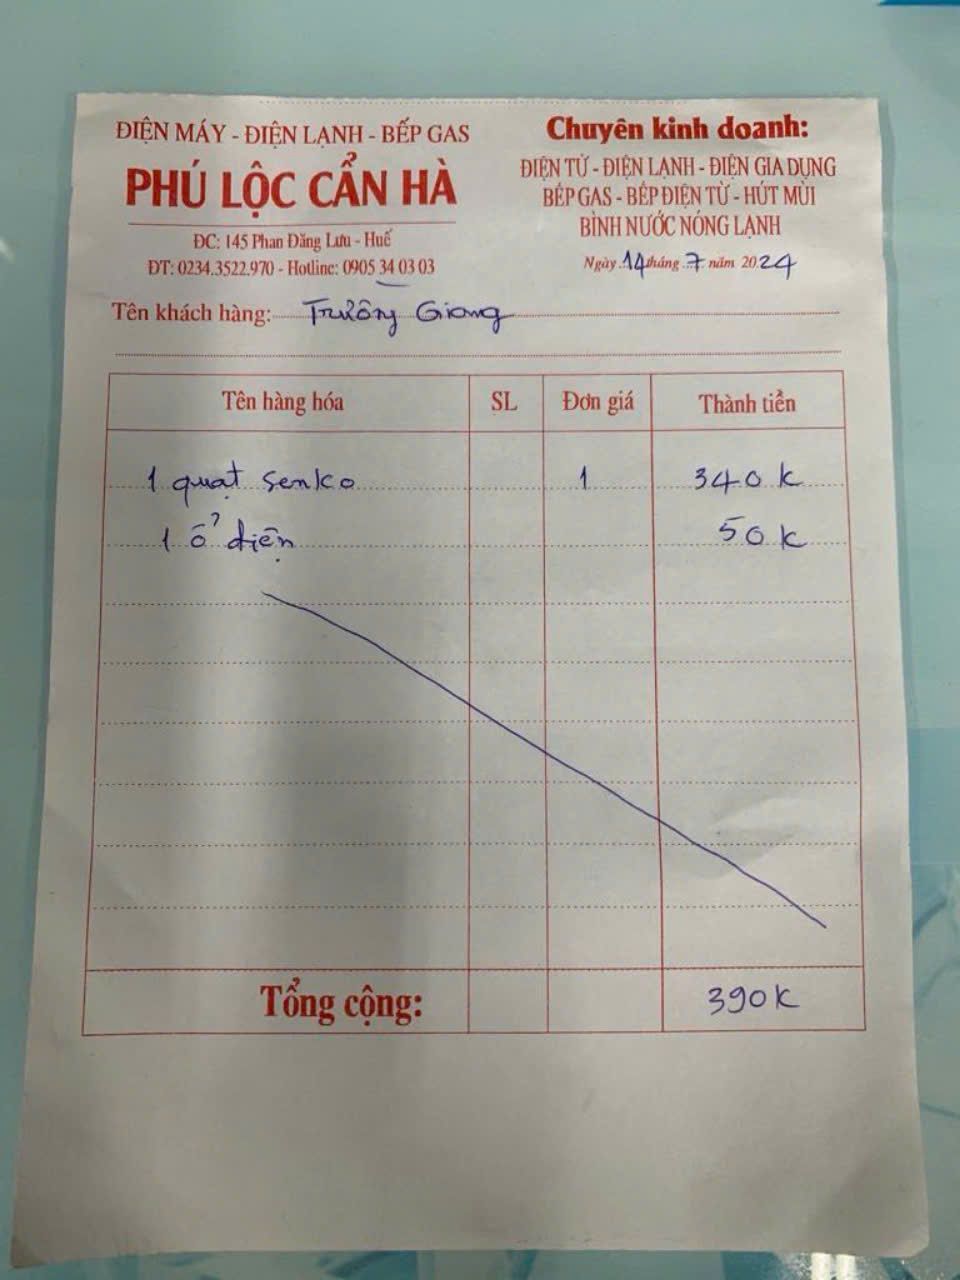 ĐIỆN MÁY - ĐIỆN LẠNH - BẾP GAS
PHÚ LỘC CẨN HÀ
ĐC: 145 Phan Đăng Lưu - Huế
ĐT: 0234.3522.970 - Hotline: 0905 34 03 03
Chuyên kinh doanh:
ĐIỆN TỬ - ĐIỆN LẠNH - ĐIỆN GIA DỤNG
BẾP GAS - BẾP ĐIỆN TỪ - HÚT MÙI
BÌNH NƯỚC NÓNG LẠNH
Ngày 14 tháng 7 năm 2024
Tên khách hàng: Trường Giang
Tên hàng hóa SL Đơn giá Thành tiền
1 quạt senko 1 340k
1 ổ điện 50k
Tổng cộng: 390k